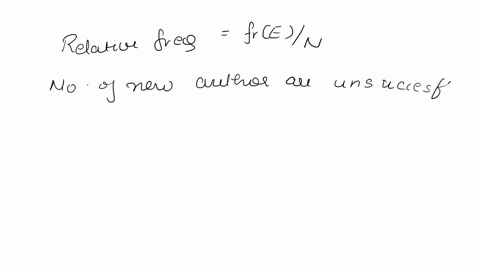 Relative freq = fr(E)/N
No. of new author are unsuccesf